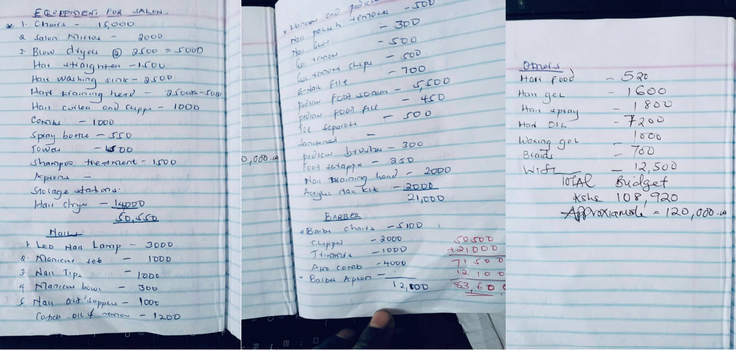 EQUIPMENT FOR SALON
* 1. Chairs - 15,000
2 Salon Mirror - 2000
3. Blow dryers @ 2500 = 5000
Hair straighten - 1500
Hair washing sink - 2500
Hair training head - 2500 - 5000
Hair curler and - 1000
Combs - 1000
Spray bottle - 550
Towels - 1500
Shampoo treatment - 1500
Aprons -
Storage stations
Hair dryer - 14000
50,550
NAILS
1. Led Nail Lamp - 3000
2. Manicure set - 1000
3 Nail Tips - 1000
4 Manicure bowl - 300
5 Nail - 1000
Cuticle oil & - 1200
0,000.00
- 500
Nail polish remover
- 300
- 500
- 500
file - 700
pedicure foot - 5,500
pedicure foot file - 450
Toe separator - 500
-
pedicure brushes - 300
Foot - 250
Nail training hand - 2000
Nail kit - 2000
21,000
BARBER
Barber chairs - 5100
- 2000
Trimmers - 1000
Afro comb - 4000
- Barber Apron -
12,100
50,500
+21,000
71 500
12 100
83,600
Others
Hair Food - 520
Hair gel - 1600
Hair spray - 1800
Hair OIL - 7200
Waxing gel - 1000
Braids - 700
- 12,500
TOTAL Budget
Kshs 108,920
Approximate = 120,000.00